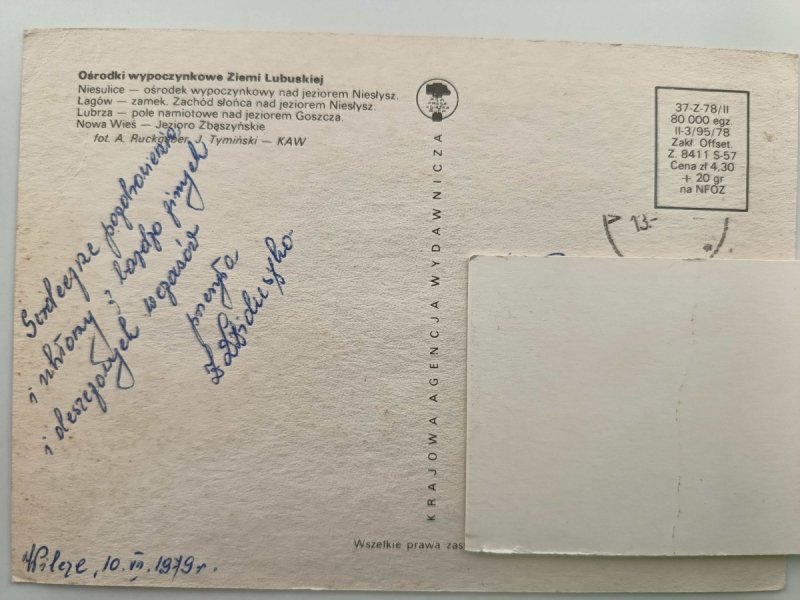 Ośrodki wypoczynkowe Ziemi Lubuskiej
Niesulice — ośrodek wypoczynkowy nad jeziorem Niesłysz.
Łagów — zamek. Zachód słońca nad jeziorem Niesłysz.
Lubrza — pole namiotowe nad jeziorem Goszcza.
Nowa Wieś — Jezioro Zbąszyńskie
fot. A. Ruckgaber, J. Tymiński — KAW
Serdeczne pozdrowienia
i ukłony z bardzo zimnych
i deszczowych wczasów
przesyła
KRAJOWA AGENCJA WYDAWNICZA
37-Z-78/II
80 000 egz.
II-3/95/78
Zakł. Offset.
Z. 8411 S-57
Cena zł 4,30
+ 20 gr
na NFOZ
13-
Wszelkie prawa zas
Wilcze, 10. VII. 1979 r.